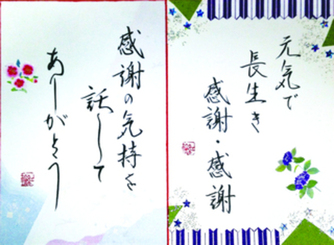 元気で
長生き
感謝・感謝
感謝の気持を
託して
ありがとう